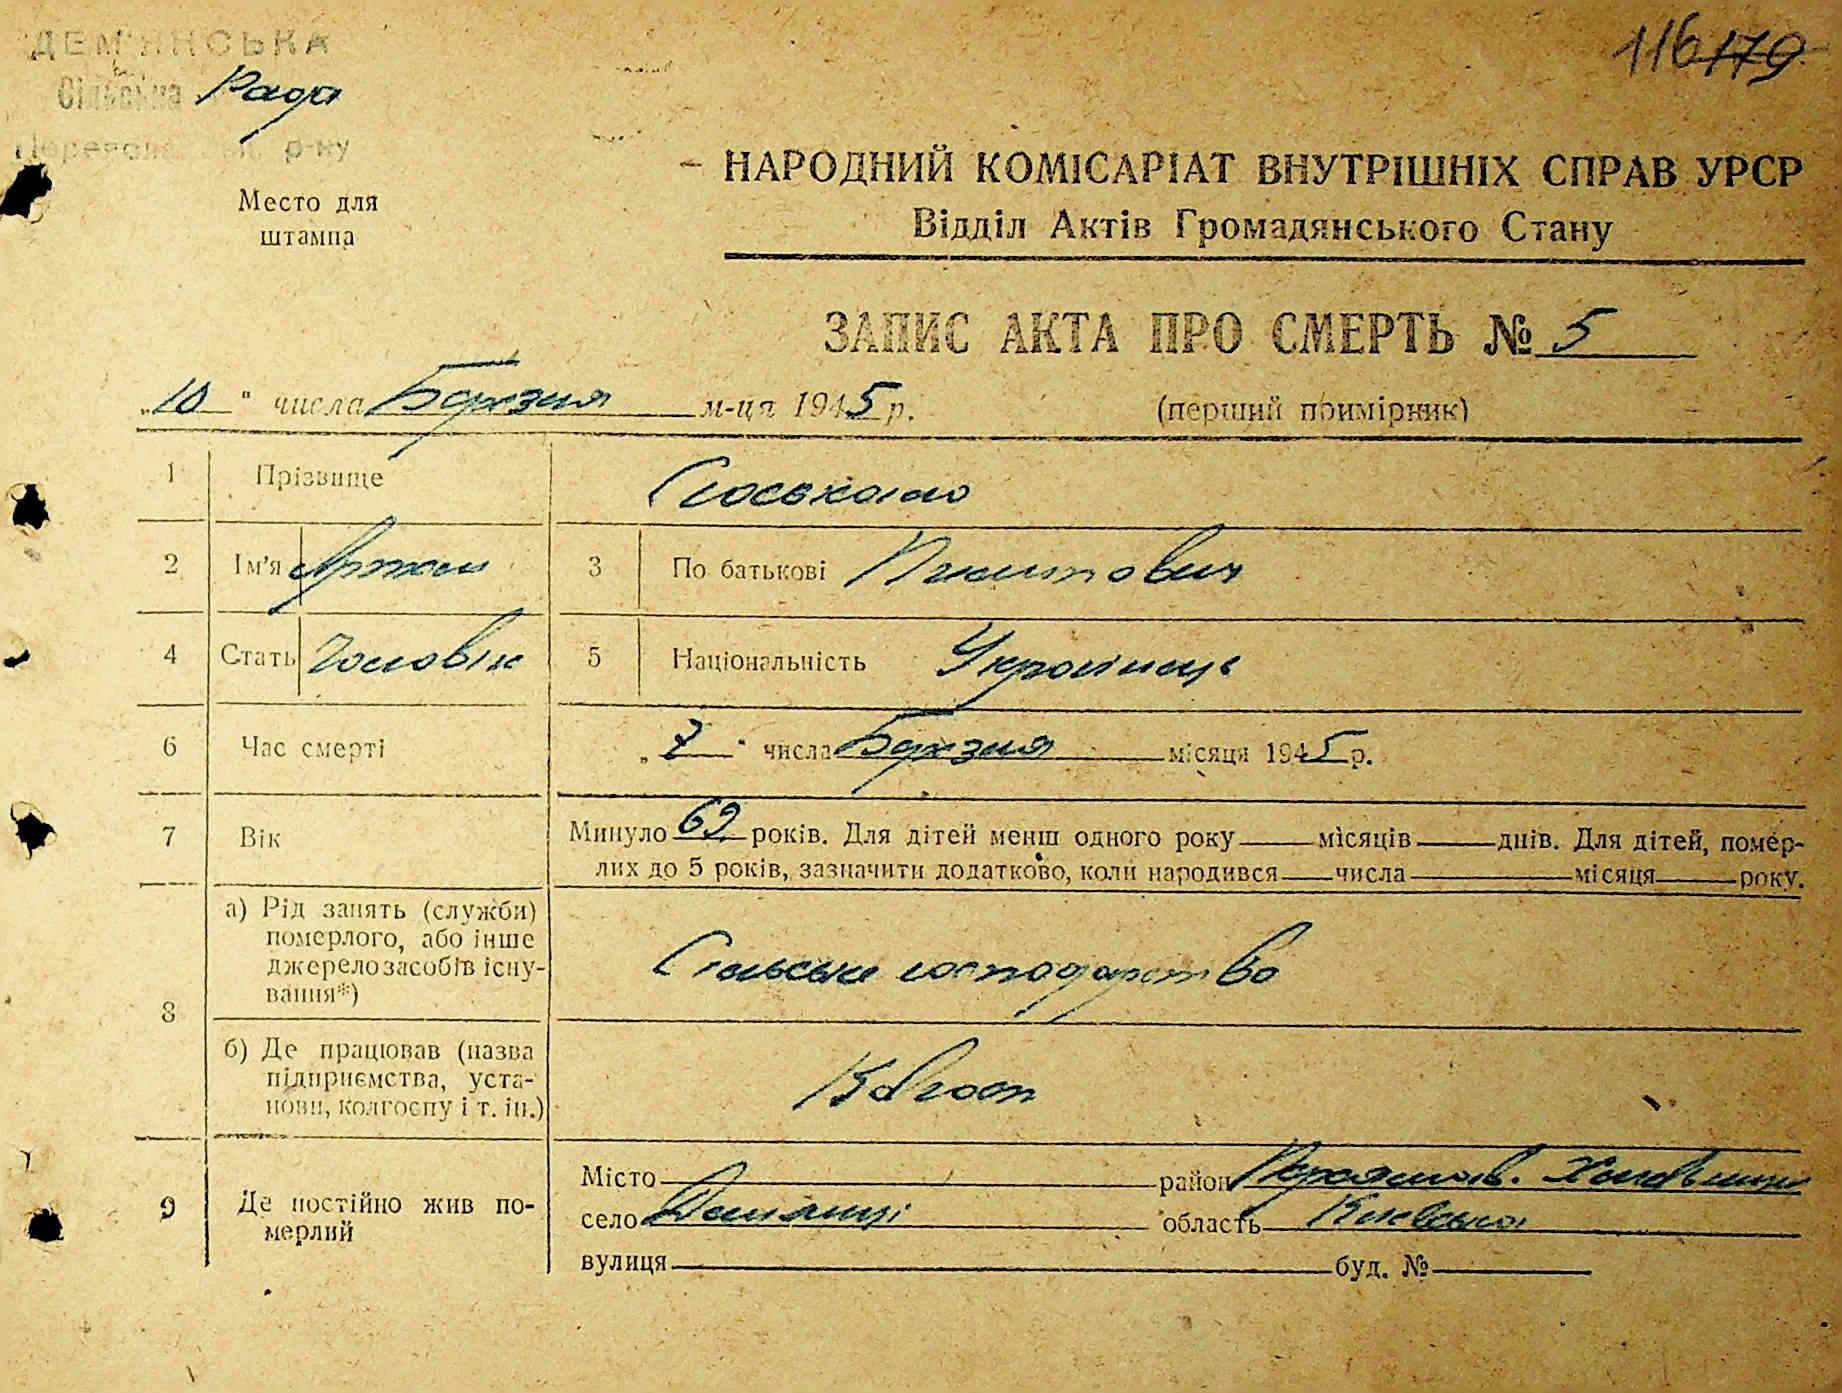 ДЕМ'ЯНСЬКА
Сільська Рада
р-ну
116 179
Место для
штампа
НАРОДНИЙ КОМІСАРІАТ ВНУТРІШНІХ СПРАВ УРСР
Відділ Актів Громадянського Стану
ЗАПИС АКТА ПРО СМЕРТЬ № 5
„10“ числа Березня м-ця 1945 р. (перший примірник)
1 Прізвище
2 Ім'я 3 По батькові
4 Стать Чоловік 5 Національність Українець
6 Час смерті „7“ числа Березня місяця 1945 р.
7 Вік Минуло 69 років. Для дітей менш одного року місяців днів. Для дітей, помер-
лих до 5 років, зазначити додатково, коли народився числа місяця року.
8 а) Рід занять (служби)
померлого, або інше
джерело засобів існу-
вання*) Сільське господарство
б) Де працював (назва
підприємства, уста-
нови, колгоспу і т. ін.) Колгосп
9 Де постійно жив по-
мерлий
Місто район
село Демянці область Київська
вулиця буд. №